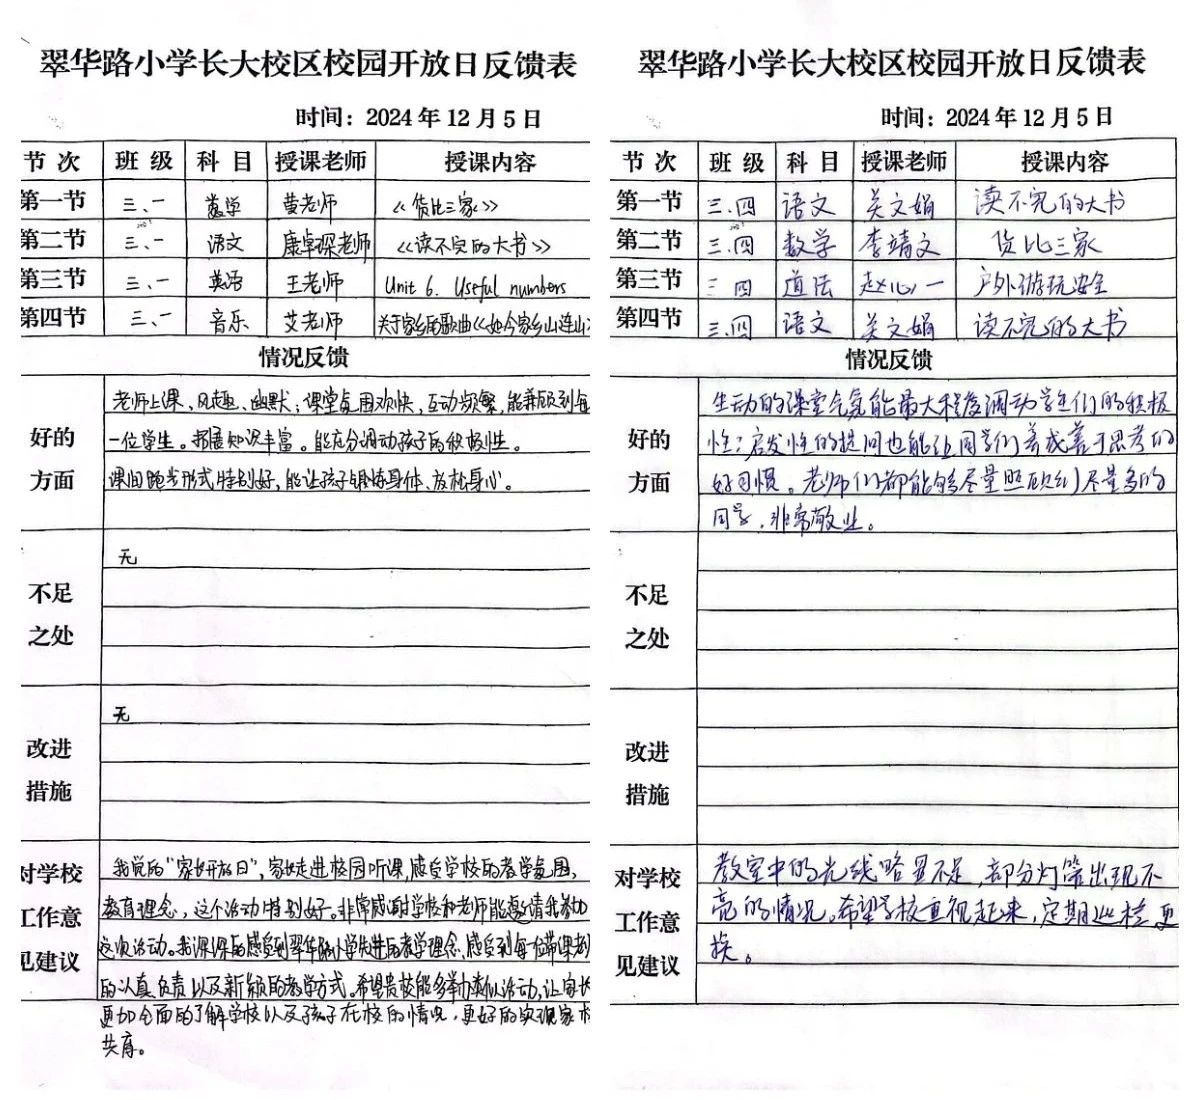 翠华路小学长大校区校园开放日反馈表
时间：2024年12月5日
节次 班级 科目 授课老师 授课内容
第一节 三、一 数学 黄老师 《货比三家》
第二节 三、一 语文 康卓琛老师 《读不完的大书》
第三节 三、一 英语 王老师 Unit 6. Useful numbers
第四节 三、一 音乐 艾老师 关于家乡的歌曲《如今家乡山连山
情况反馈
好的方面
老师上课、风趣、幽默；课堂氛围欢快，互动频繁，能兼顾到每
一位学生。拓展知识丰富。能充分调动孩子的积极性。
课间跑步形式特别好，能让孩子锻炼身体、放松身心。
不足之处
无
改进措施
无
对学校工作意见建议
我觉的“家长开放日”，家长走进校园听课，感受学校的教学氛围，
教育理念，这个活动特别好。非常感谢学校和老师能邀请我参加
这次活动。我深深的感受到翠华路小学先进的教学理念，感受到每一位带课老师
的认真负责以及新颖的教学方式。希望贵校能多举办类似活动，让家长
更加全面的了解学校以及孩子在校的情况，更好的实现家校
共育。
翠华路小学长大校区校园开放日反馈表
时间：2024年12月5日
节次 班级 科目 授课老师 授课内容
第一节 三.四 语文 吴文娟 读不完的大书
第二节 三.四 数学 李靖文 货比三家
第三节 三 四 道法 赵心一 户外游玩安全
第四节 三.四 语文 吴文娟 读不完的大书
情况反馈
好的方面
生动的课堂气氛能最大程度调动学生们的积极
性；启发性的提问也能让同学们养成善于思考的
好习惯。老师们都能够尽量照顾到尽量多的
同学，非常敬业。
不足之处
改进措施
对学校工作意见建议
教室中的光线略显不足，部分灯管出现不
亮的情况。希望学校重视起来，定期巡检更
换。